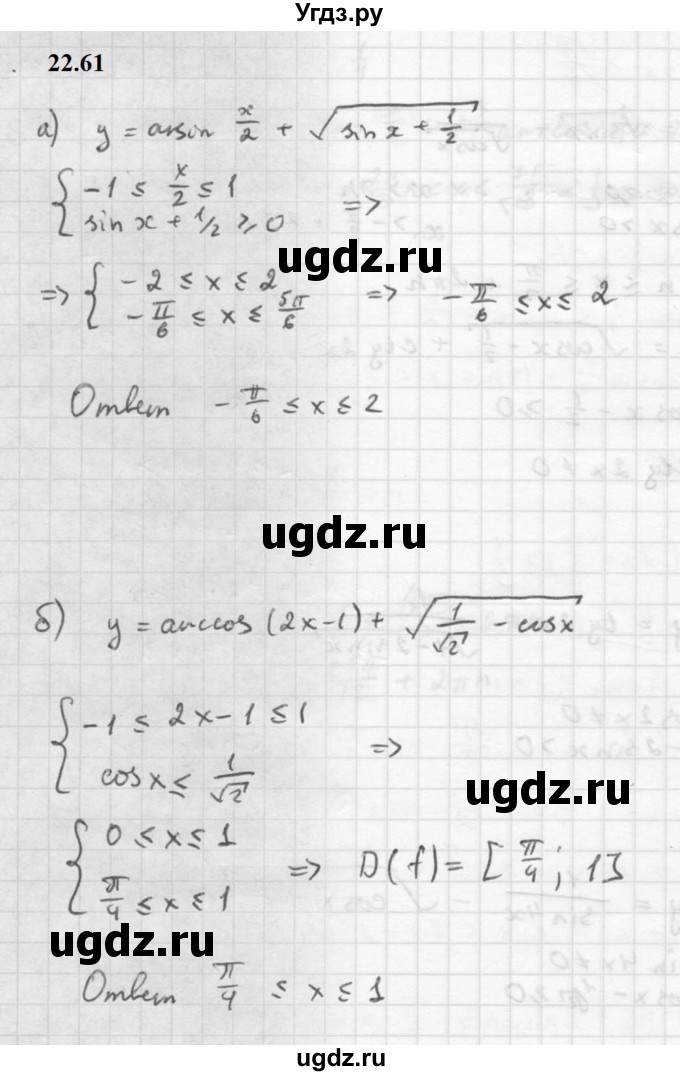 Угдз.ру
22.61
а) y = arcsin x/2 + √(sin x + 1/2)
{ -1 ≤ x/2 ≤ 1
sin x + 1/2 ⩾ 0 =>
ugdz.ru
=> { -2 ≤ x ≤ 2
-π/6 ≤ x ≤ 5π/6 => -π/6 ≤ x ≤ 2
Ответ -π/6 ≤ x ≤ 2
ugdz.ru
б) y = arccos (2x-1) + √(1/√2 - cosx)
{ -1 ≤ 2x-1 ≤ 1
cosx ≤ 1/√2 =>
ugdz.ru
{ 0 ≤ x ≤ 1
π/4 ≤ x ≤ 1 => D(f) = [π/4; 1]
ugdz.ru
Ответ π/4 ≤ x ≤ 1
ugdz.ru